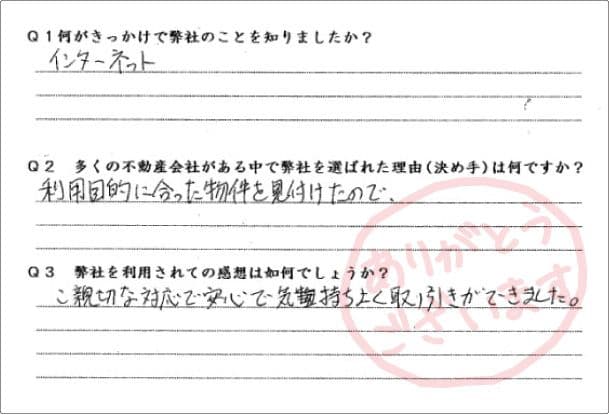 Q1何がきっかけで弊社のことを知りましたか？
インターネット
Q2 多くの不動産会社がある中で弊社を選ばれた理由(決め手)は何ですか？
利用目的に合った物件を見付けたので、
Q3 弊社を利用されての感想は如何でしょうか？
ご親切な対応で安心で気持ちよく取り引きができました。
ありがとう
ございます